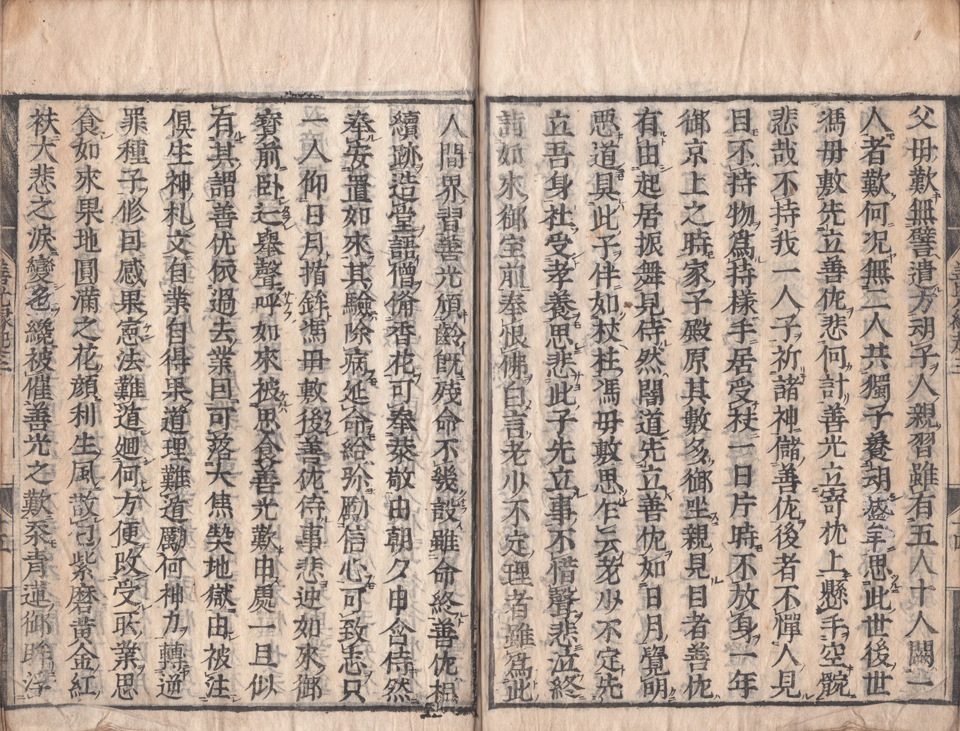 父毋歎無譬遣方胡子人親習雖有五人十人闕一
人者歎何况無二人共獨子養胡盛年思此世後世
馮毋敷先立善佐悲何計善光立寄枕上懸手空腕
悲哉不持我一人子祈諸神儲善佐後者不憚人見
目不持物爲持樣手居受杖一日片時不放身一年
御京上之時家子殿原其敷多御坐親見目者善佐
有由起居振舞見侍然闇道先立善佐如日月覺明
立吾身社受孝養思悲此子先立事不惜聲悲泣終
惡道具此子伴如杖柱馮毋敷思乍云老少不定先
詣如來御宝前奉恨佛白言老少不定理者雖爲此
人間界習善光頽齡既残命不幾設雖命終善佐相
續跡造堂語僧備香花可奉恭敬由朝夕申含侍然
奉安置如來其驗除病延命給弥勵信心可致志只
一人仰日月指鉾馮毋敷後善佐侍事悲逆如來御
寳前臥亡擧聲呼如來被思食善光歎申處一旦似
有其謂善佐依過去業因可落大焦𤍠地獄由被注
倶生神札文自業自得果道理難遁勵何神力轉逆
罪種子修因感果悳法難遁廻何方便改受所業思
食如來果地圓滿之花顔利生風散可紫磨黄金紅
袂大悲之淚變色纔被催善光之歎忝青蓮御眸浮